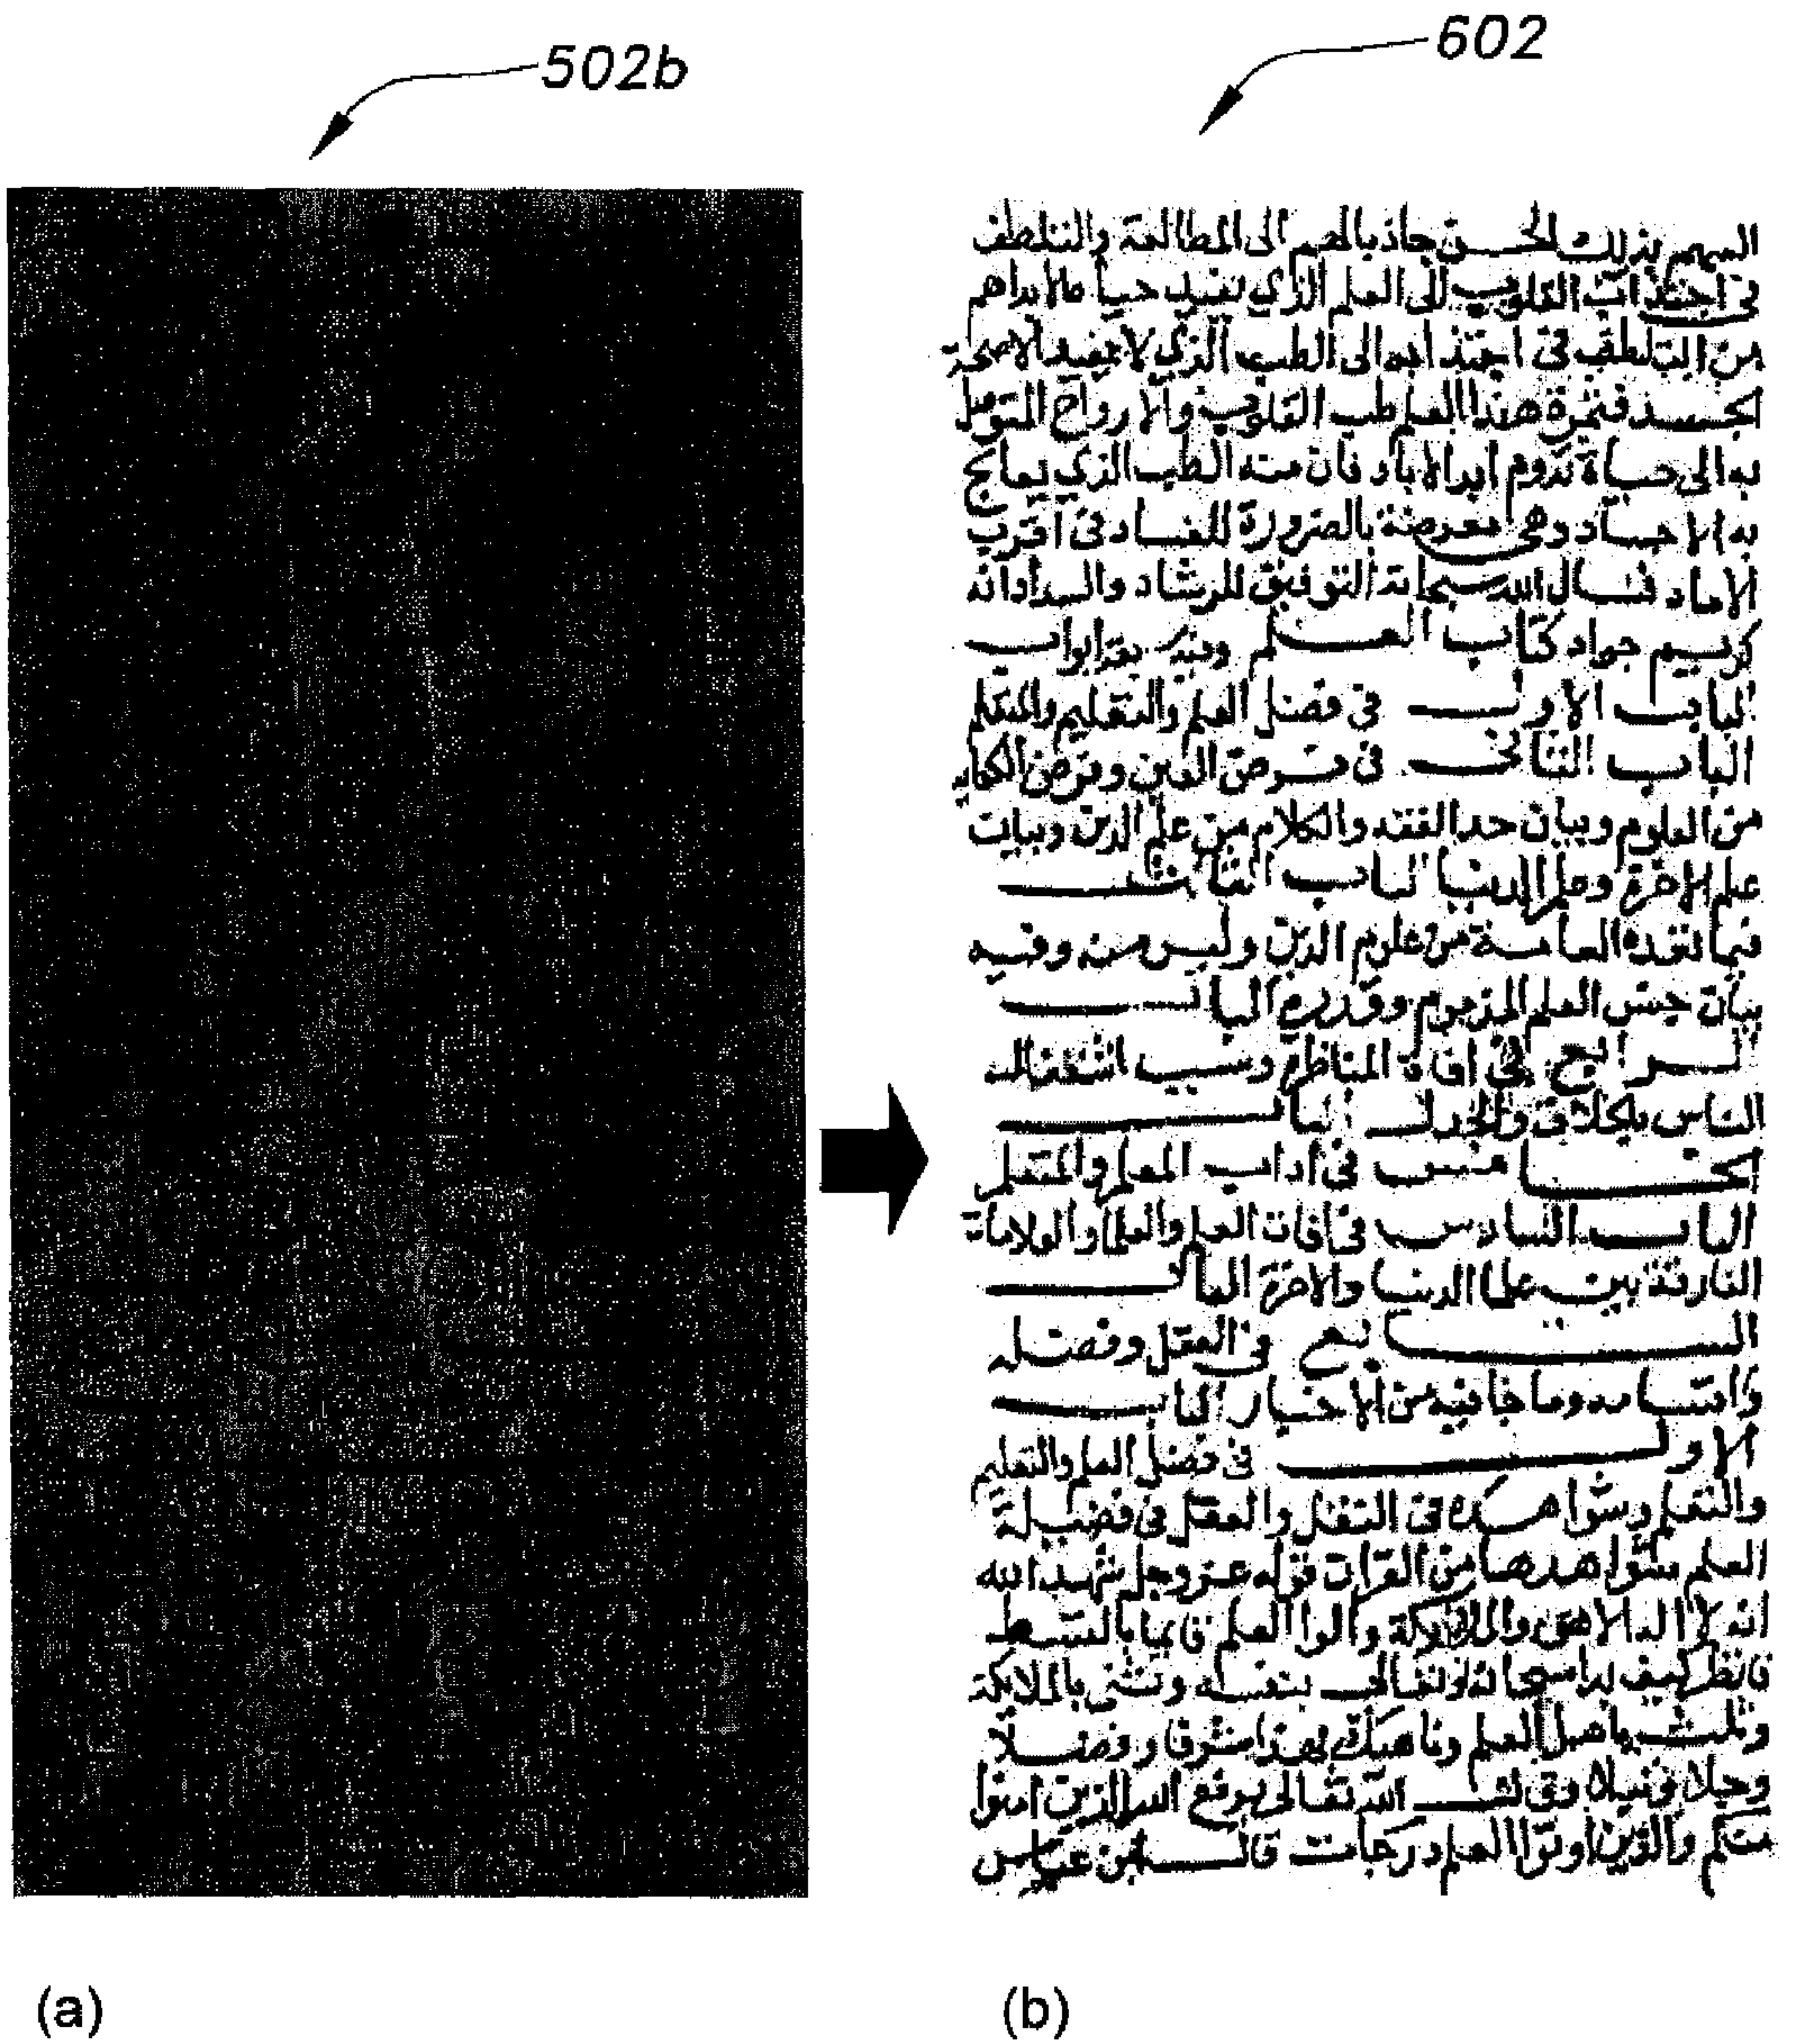 502b
602
بذلك الحسن جاذبا لهم الى المطالعة والتلطف
فى اجتذاب القلوب الى العلم الذي يفيد حياة الابد اهم
من التلطف فى اجتذابها الى الطب الذي لا يفيد الا صحة
الجسد فثمرة هذا العلم طب القلوب والارواح المتوصل
به الى حياة تدوم ابد الاباد فاين منه الطب الذي يعالج
به الاجساد وهى معرضة بالضرورة للفساد فى اقرب
الاماد فنسال الله سبحانه التوفيق للرشاد والسداد انه
كريم جواد كتاب العلم وفيه ابواب
الباب الاول فى فضل العلم والتعليم والتعلم
الباب الثانى فى فرض العين وفرض الكفاية
من العلوم وبيان حد الفقه والكلام من علم الدين وبيان
علم الاخرة وعلم الدنيا الباب الثالث
فيما تعده العامة من علوم الدين وليس منه وفيه
بيان جنس العلم المذموم وقدره الباب
الرابع فى افات المناظرة وسبب اشتغال
الناس بالخلاف والجدل الباب
الخامس فى اداب المعلم والمتعلم
الباب السادس فى افات العلم والعلما والعلامات
الفارقة بين علما الدنيا والاخرة الباب
السابع فى العقل وفضله
واقسامه وما جا فيه من الاخبار الباب
الاول فى فضل العلم والتعليم
والتعلم وشواهده فى النقل والعقل فضيلة
العلم شواهدها من القران قوله عز وجل شهد الله
انه لا اله الا هو والملائكة واولوا العلم قايما بالقسط
فانظر كيف بدا سبحانه وتعالى بنفسه وثنى بالملايكة
وثلث باهل العلم وناهيك بهذا شرفا وفضلا
وجلا ونبلا وقال الله تعالى يرفع الله الذين امنوا
منكم والذين اوتوا العلم درجات قال ابن عباس
(a)
(b)